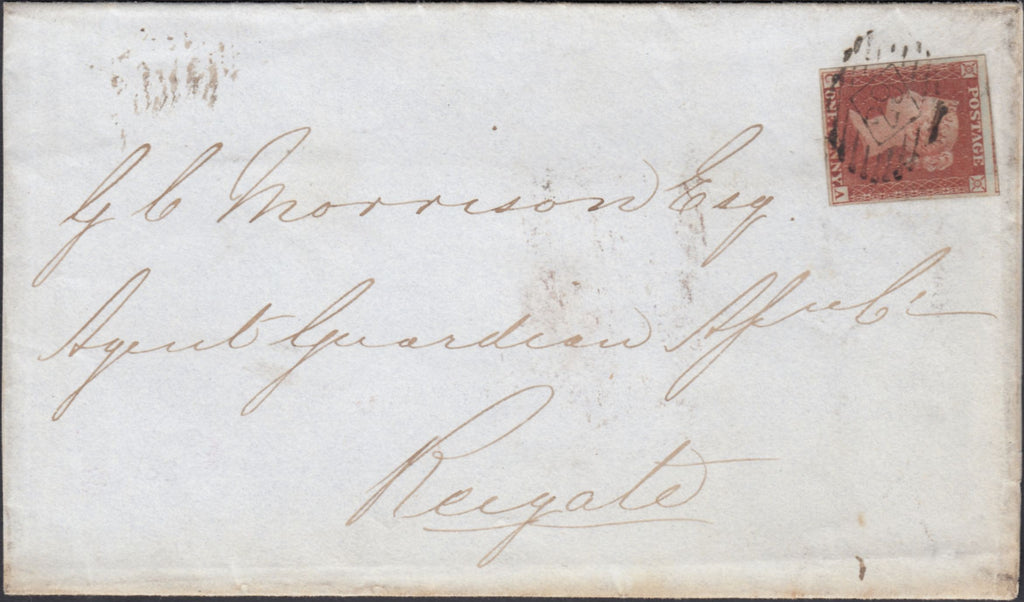 G C Morrison Esq.
Agent Guardian Assce Co
Reigate
POSTAGE
ONE PENNY
A